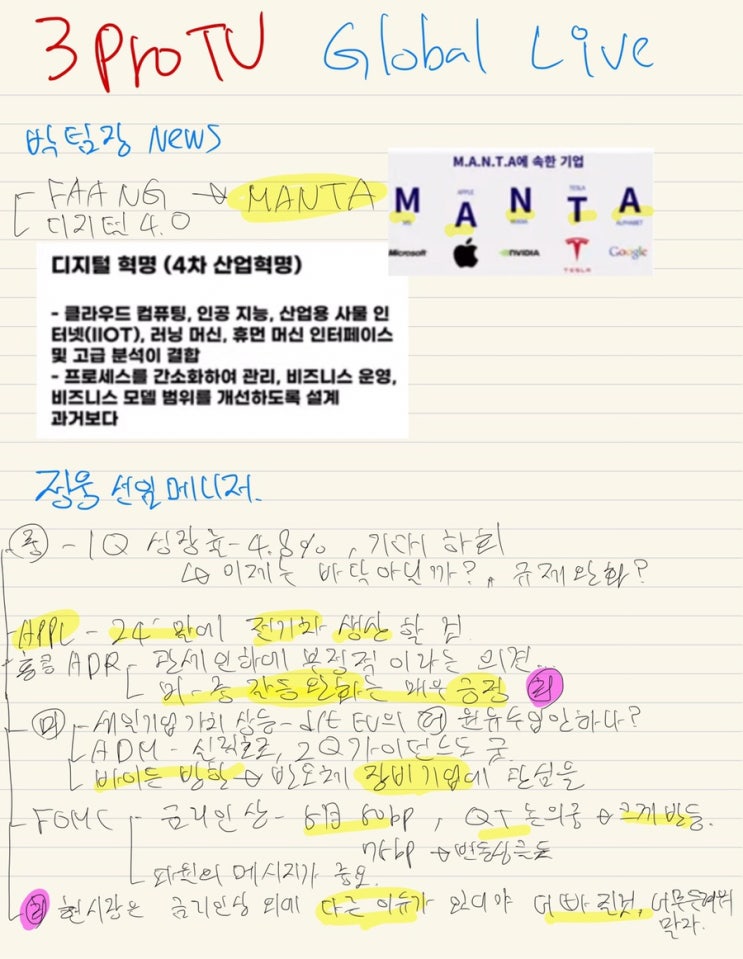 3 Pro TV Global Live
박팀장 News
FAANG → MANTA
디지털 4.0
M.A.N.T.A에 속한 기업
APPLE TESLA
M A N T A
MS NVIDIA ALPHABET
Microsoft NVIDIA TESLA Google
디지털 혁명 (4차 산업혁명)
- 클라우드 컴퓨팅, 인공 지능, 산업용 사물 인
터넷(IIOT), 러닝 머신, 휴먼 머신 인터페이스
및 고급 분석이 결합
- 프로세스를 간소화하여 관리, 비즈니스 운영,
비즈니스 모델 범위를 개선하도록 설계
과거보다
장웅 선임 매니저.
중 - 1Q 성장률 - 4.8%, 기대치 하회
↳ 이제는 바닥아닐까?, 규제완화?
APPL - 24' 말에 전기차 생산 할 것.
홍콩 ADR - 관세인하에 부정적 이라는 의견...
미-중 갈등 완화는 매우 긍정
미 - 셰일기업 가치 상승 - EU의 러 원유수입안하다?
ADM - 실적호조, 2Q가이던스도 굿
바이든 방한 → 반도체 장비기업에 관심을
FOMC - 금리인상 - 50bp, QT 논의중 → 크게반등.
75bp → 반등상승도
파월의 메시지가 중요.
현시장은 금리인상 외에 다른 이유가 있어야 더 빠질것, 너무두려워
말라.